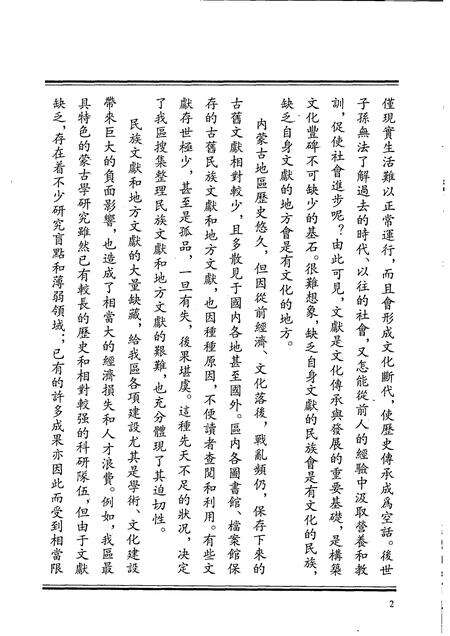 僅現實生活難以正常運行，而且會形成文化斷代，使歷史傳承成爲空話。後世
子孫無法了解過去的時代、以往的社會，又怎能從前人的經驗中汲取營養和教
訓，促使社會進步呢？由此可見，文獻是文化傳承與發展的重要基礎，是構築
文化豐碑不可缺少的基石。很難想象，缺乏自身文獻的民族會是有文化的民族，
缺乏自身文獻的地方會是有文化的地方。
内蒙古地區歷史悠久，但因從前經濟、文化落後，戰亂頻仍，保存下來的
古舊文獻相對較少，且多散見于國内各地甚至國外。區内各圖書館、檔案館保
存的古舊民族文獻和地方文獻，也因種種原因，不便讀者查閲和利用。有些文
獻存世極少，甚至是孤品，一旦有失，後果堪虞。這種先天不足的狀况，决定
了我區搜集整理民族文獻和地方文獻的艱難，也充分體現了其迫切性。
民族文獻和地方文獻的大量缺藏，給我區各項建設尤其是學術、文化建設
帶來巨大的負面影響，也造成了相當大的經濟損失和人才浪費。例如，我區最
具特色的蒙古學研究雖然已有較長的歷史和相對較强的科研隊伍，但由于文獻
缺乏，存在着不少研究盲點和薄弱領域；已有的許多成果亦因此而受到相當限
2